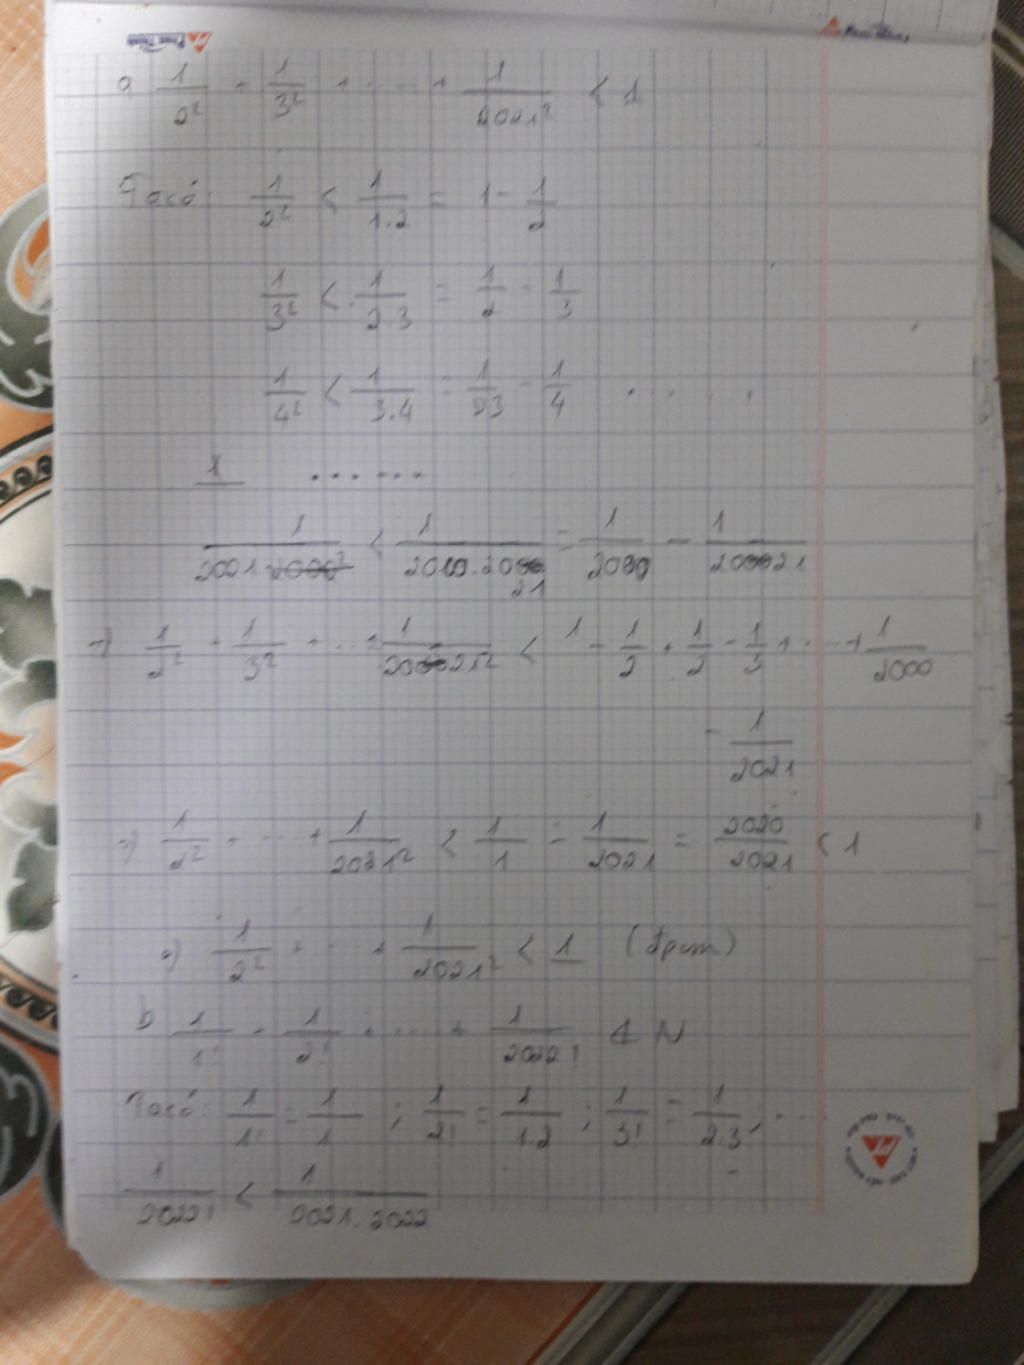 a) 1/2² + 1/3² + ... + 1/2021² < 1
Ta có: 1/2² < 1/1.2 = 1 - 1/2
1/3² < 1/2.3 = 1/2 - 1/3
1/4² < 1/3.4 = 1/3 - 1/4 ....
......
1/2021² < 1/2020.2021 = 1/2020 - 1/2021
=) 1/2² + 1/3² + ... + 1/2021² < 1 - 1/2 + 1/2 - 1/3 + ... + 1/2000
- 1/2021
=) 1/2² + ... + 1/2021² < 1/1 - 1/2021 = 2020/2021 < 1
=) 1/2² + ... + 1/2021² < 1 (đpcm)
b 1/1! + 1/2! + .... + 1/2022! ∉ N
Ta có: 1/1! = 1/1 ; 1/2! = 1/1.2 ; 1/3! = 1/2.3 ; ...
1/2022! < 1/2021.2022